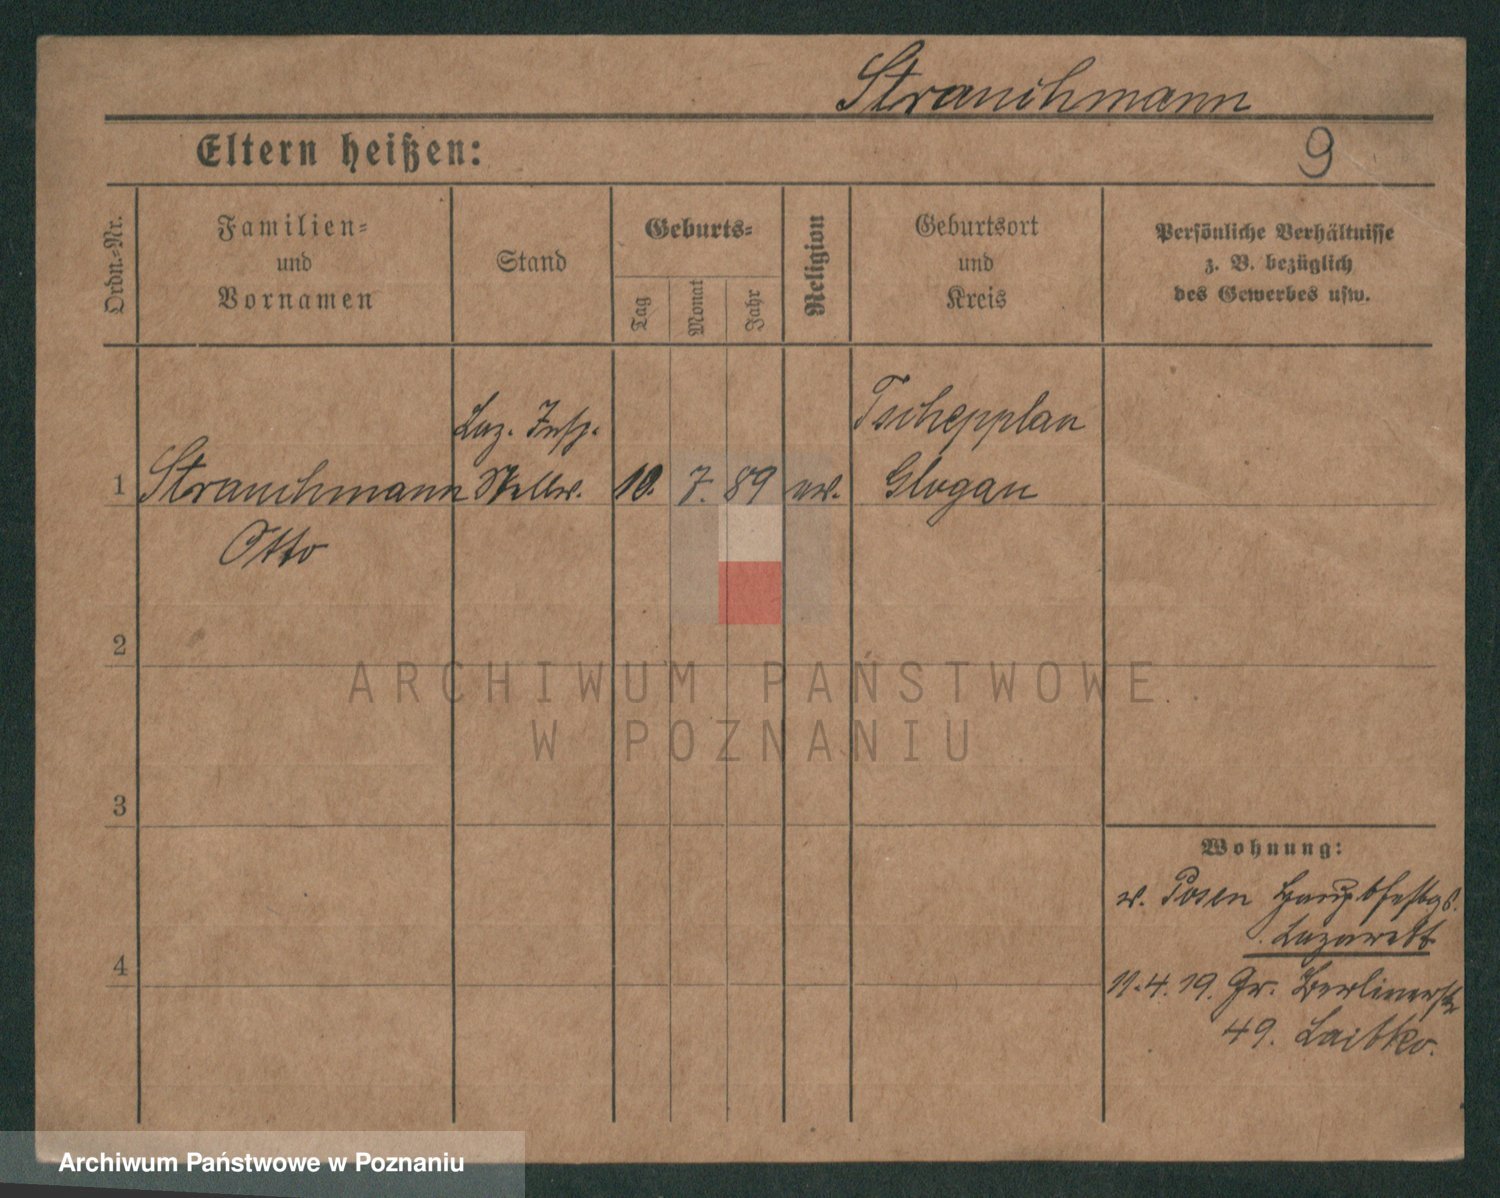 Strauchmann
Eltern heißen:
9
Ordn.-Nr.
Familien-
und
Vornamen
Stand
Geburts-
Tag
Monat
Jahr
Religion
Geburtsort
und
Kreis
Persönliche Verhältnisse
z. B. bezüglich
des Gewerbes usw.
Laz. Insp.
Tschepplau
1 Strauchmann Stellv. 10. 7. 89 ev. Glogau
Otto
2
3
4
Wohnung:
v. Posen Hauptfestgs.
Lazarett
11.4.19. Gr. Berlinerstr
49.
ARCHIWUM PAŃSTWOWE
W POZNANIU
Archiwum Państwowe w Poznaniu